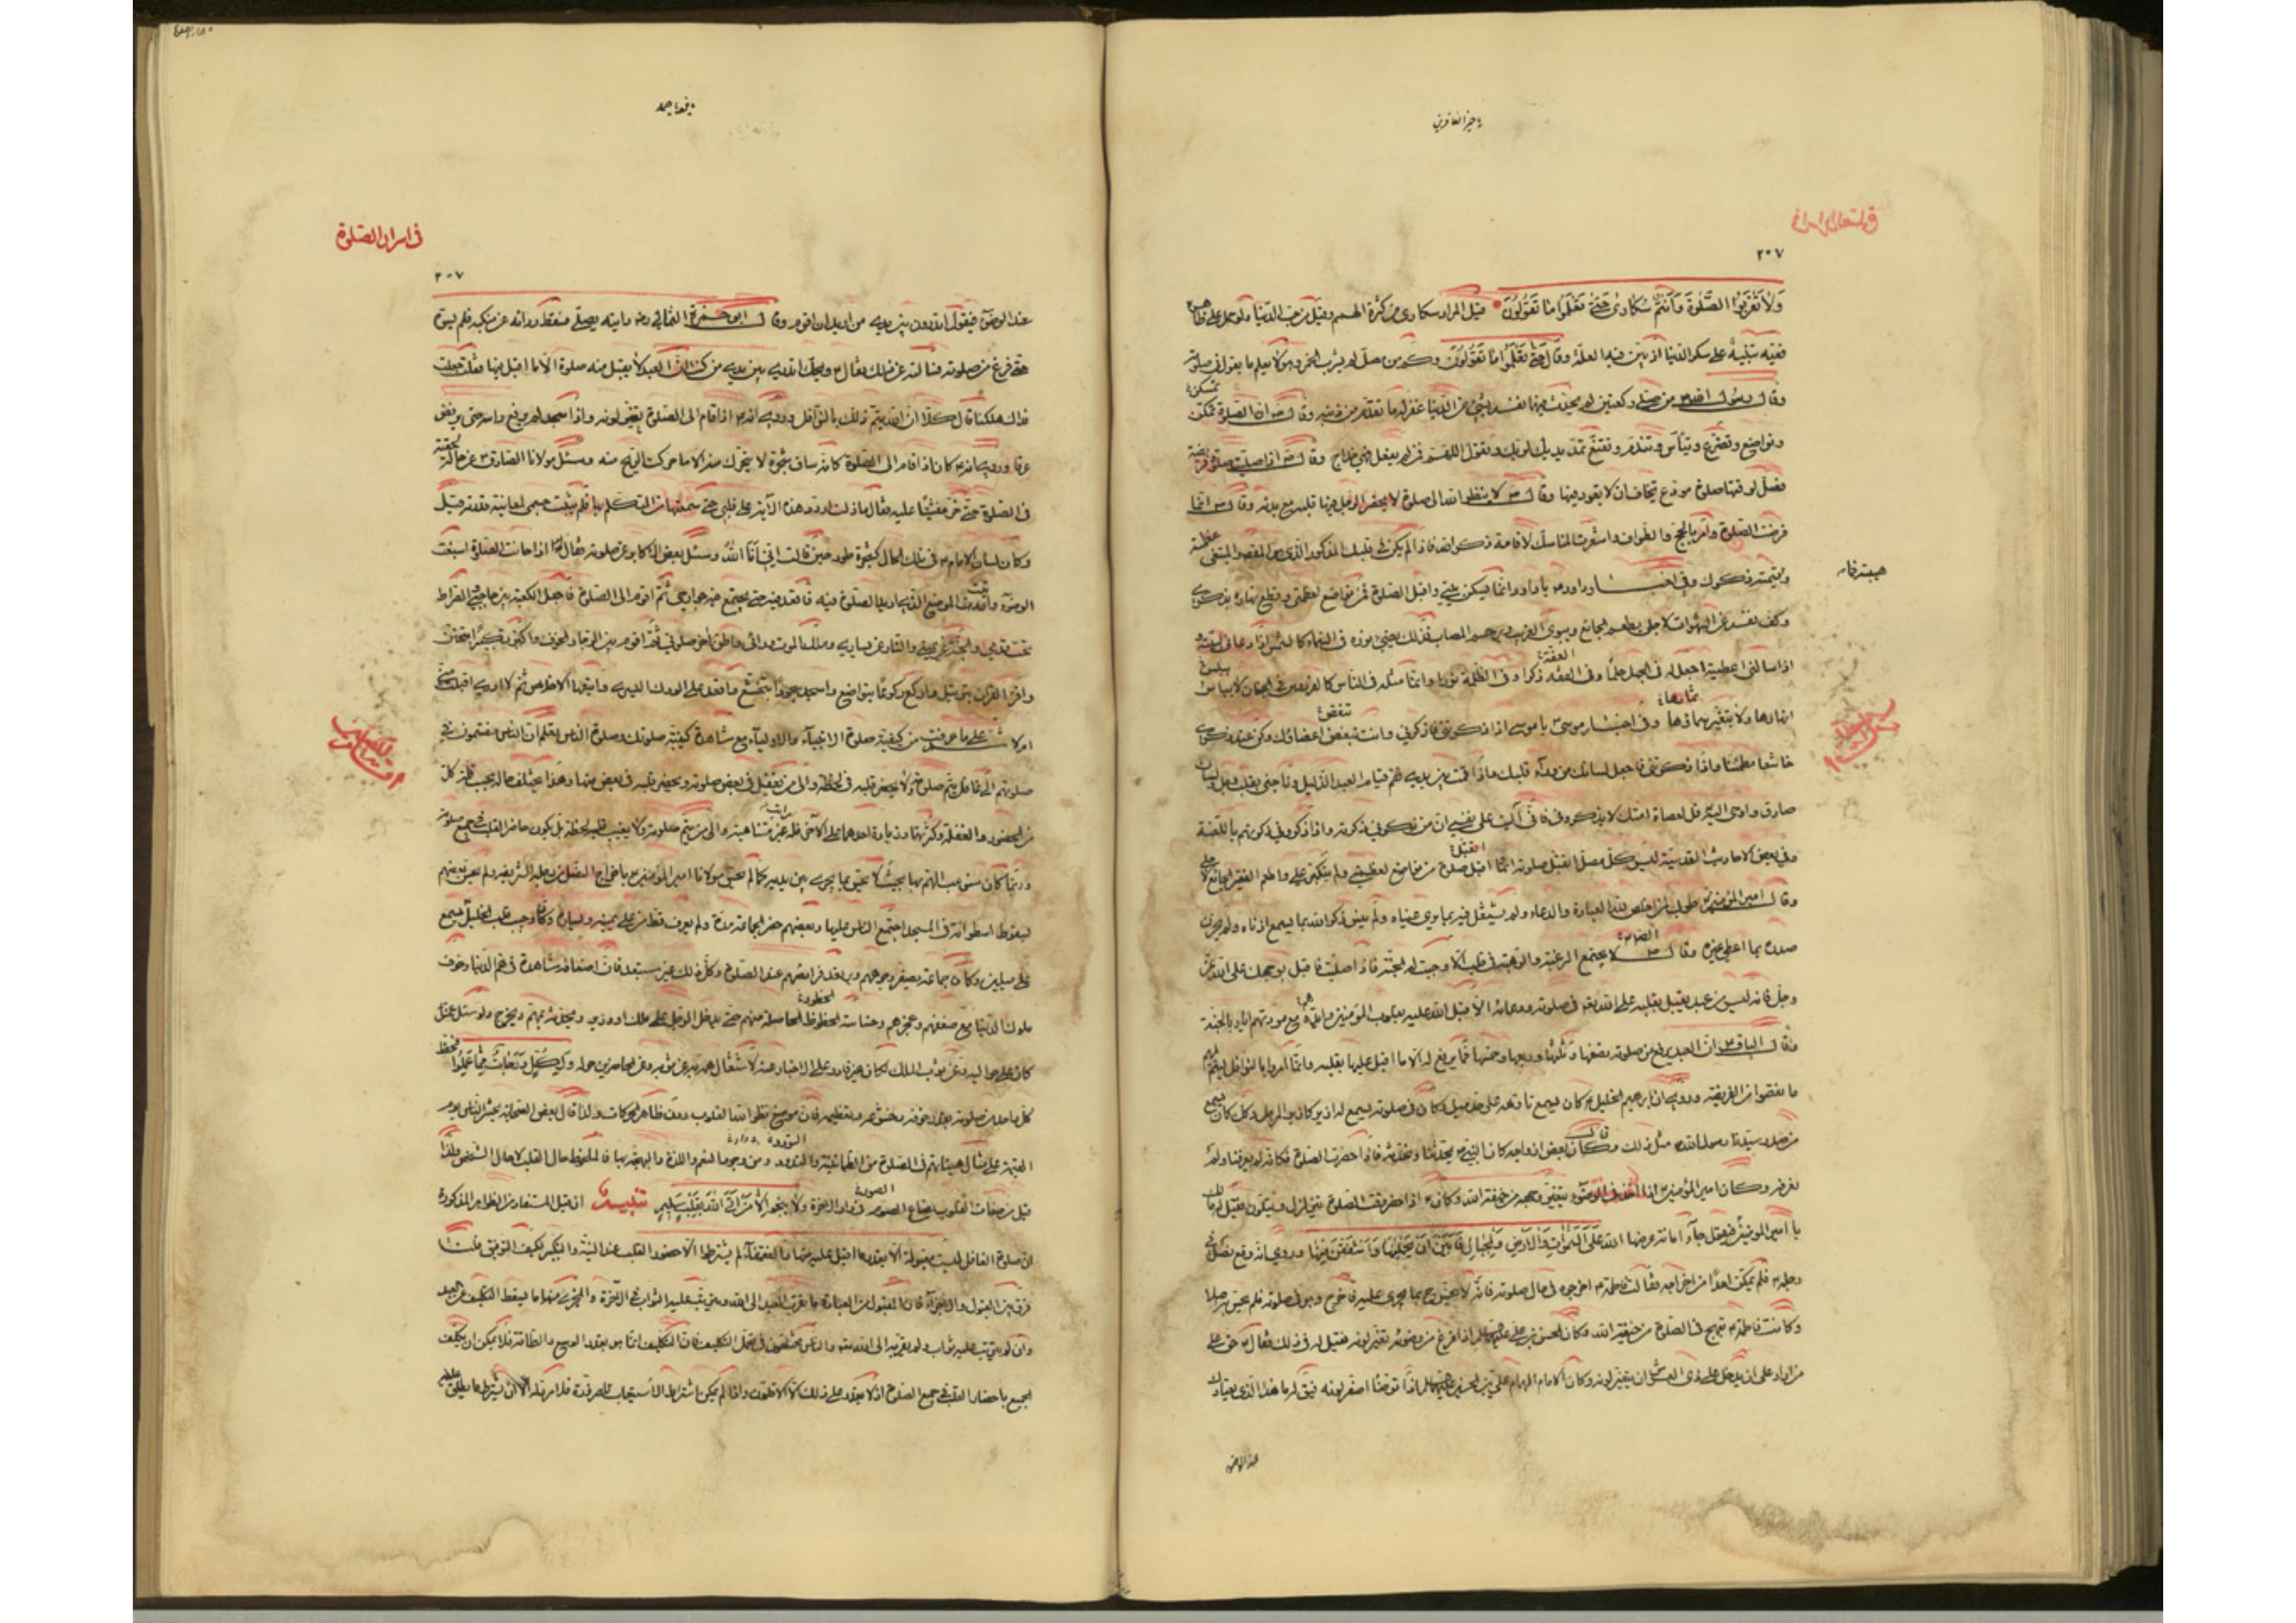 يا خير الغافرين
٣٠٧
وَلَا تَقْرَبُوا الصَّلٰوةَ وَأَنْتُمْ سُكَارىٰ حَتّىٰ تَعْلَمُوا مَا تَقُولُونَ قيل المراد سكارى من كثرة الهم وقيل من حب الدنيا ولو حمل على ظاهره
ففيه تنبيه على سكر الدنيا اذ بيّن فيه العلة وقال حَتّىٰ تَعْلَمُوا مَا تَقُولُونَ وكم من مصلّ لم يشرب الخمر وهو لا يعلم ما يقول في صلوته
وقال رسول الله ص من صلى ركعتين لم يحدّث فيهما نفسه بشيء من الدنيا غفر له ما تقدّم من ذنبه وقال ص ان الصلوة تمكن
وتواضع وتضرّع وتبأس وتندّم وتقنع بمدّ يديك فتقول اللهم فمن لم يفعل فهي خداج وقال ص اذا صليت صلوة فريضة
فصلّ لوقتها صلوة مودّع يخاف ان لا يعود فيها وقال ص لا ينظر الله الى صلوة لا يحضر الرجل فيها قلبه مع بدنه وقال ص انما
فرضت الصلوة وامر بالحج والطواف واشعرت المناسك لاقامة ذكر الله فاذا لم يكن في قلبك المذكور الذي هو المقصود المبتغى عظمة
هيبة فما
ولا هيبة فما قيمة ذكرك وفي اخبار داود يا داود انما يسكن بيتي واقبل الصلوة ممن تواضع لعظمتي وقطع نهاره بذكري
وكف نفسه عن الشهوات لاجلي يطعم الجائع ويؤوي الغريب ويرحم المصاب فذلك يضيء نوره في السماء كالشمس اذا دعاني لبيته و
اذا سالني اعطيته اجعل له في الجهل حلما وفي الغفلة ذكرا وفي الظلمة نورا وانما مثله في الناس كالفردوس في الجنان لا ييبس
انهارها ولا يتغير ثمارها وفي اخبار موسى يا موسى اذا ذكرتني فاذكرني وانت تنفض اعضاؤك وكن عند ذكري
خاشعا مطمئنا واذا ذكرتني فاجعل لسانك من وراء قلبك واذا قمت بين يدي فقم قيام العبد الذليل وناجني بقلب وجل ولسان
صادق واوحى اليه قل لعصاة امتك لا يذكروني فاني آليت على نفسي ان من ذكرني ذكرته واذا ذكروني ذكرتهم باللعنة
وفي بعض الاحاديث القدسية ليس كل مصلّ اتقبل صلوته انما اقبل صلوة من تواضع لعظمتي ولم يتكبر على واطعم الفقير الجائع
وقال امير المؤمنين طوبى لمن اخلص لله العبادة والدعاء ولم يشتغل قلبه بما يرى عيناه ولم ينس ذكر الله بما يسمع اذناه ولم يحزن
صدره بما اعطي غيره وقال الصادق لا يجتمع الرغبة والرهبة في قلب الا وجبت له الجنة فاذا صليت فاقبل بوجهك على الله عز
وجل فانه ليس من عبد يقبل بقلبه على الله في صلوته ودعائه الا اقبل الله عليه بقلوب المؤمنين وايّده مع مودتهم اياه بالجنة
وقال الباقر ان العبد يرفع من صلوته نصفها وثلثها وربعها وخمسها فما يرفع له الا ما اقبل عليها بقلبه وانما امروا بالنوافل ليتم لهم
ما نقصوا من الفريضة وروي ان ابرهيم الخليل كان يسمع تاوهه على حد ميل وكان في صلوته يسمع له ازيز كازيز المرجل وكذلك كان يسمع
من صدر سيدنا رسول الله مثل ذلك وقال بعض ازواجه كان النبي يحدثنا ونحدثه فاذا حضرت الصلوة فكانه لم يعرفنا ولم
نعرفه وكان امير المؤمنين اذا اخذ في الوضوء يتغير وجهه من خيفة الله وكان اذا حضر وقت الصلوة يتزلزل ويتلون فقيل له مالك
يا امير المؤمنين فيقول جاء وقت امانة عرضها الله على السموات والارض والجبال فابين ان يحملنها واشفقن منها وروي انه وقع نصل في
رجله فلم يمكن احدا من اخراجه فقالت فاطمة اخرجوه في حال صلوته فانه لا يحس ح بما يجري عليه فاخرج وهو في صلوته فلم يحس به اصلا
وكانت فاطمة تنهج في الصلوة من خيفة الله وكان الحسن بن علي عليهما السلام اذا فرغ من وضوئه تغير لونه فقيل له في ذلك فقال حق على
من اراد ان يدخل على ذي العرش ان يتغير لونه وكان الامام الهمام علي بن الحسين عليهما السلام اذا توضأ اصفر لونه فيقال له ما هذا الذي يعتادك
عند الوضوء
في اسرار الصلوة
٣٠٧
عند الوضوء فيقول اتدرون بين يدي من اريد ان اقوم وقال ابو حمزة الثمالي ره رايته يصلي فسقط ردائه عن منكبه فلم يسوّه
حتى فرغ من صلوته فسالته عن ذلك فقال ويحك اتدري بين يدي من كنت ان العبد لا يقبل منه صلوة الا ما اقبل فيها فقلت جعلت
فداك هلكنا قال كلا ان الله يتم ذلك بالنوافل وروي انه اذا قام الى الصلوة تغير لونه واذا سجد لم يرفع راسه حتى يرفض
عرقا وروي انه كان اذا قام الى الصلوة كانه ساق شجرة لا يتحرك منه الا ما حركت الريح منه وسئل مولانا الصادق عن حالة لحقته
في الصلوة حتى خر مغشيا عليه فقال ما زلت اردد هذه الآية على قلبي حتى سمعتها من المتكلم بها فلم يثبت جسمي لمعاينة قدرته قيل
وكان لسان الامام في تلك الحال كشجرة طور حين قالت اني انا الله وسئل بعض الاكابر عن صلوته فقال اذا حانت الصلوة اسبغت
الوضوء واتيت الموضع الذي اريد الصلوة فيه فاقعد فيه حتى يجتمع جوارحي ثم اقوم الى الصلوة فاجعل الكعبة بين حاجبي والصراط
تحت قدمي والجنة عن يميني والنار عن يساري وملك الموت ورائي واظن آخر صلوتي ثم اقوم بين الرجاء والخوف واكبر تكبيرا بتحقق
واقرء القرآن بترتيل واركع ركوعا بتواضع واسجد سجودا بتخشع واقعد على الورك اليسرى واتبعها الاخلاص ثم لا ادري اقبلت مني
ام لا على ما عرفت من كيفية صلوة الانبياء والاولياء مع مشاهدة كيفية صلوتك وصلوة الناس تعلم ان الناس ينقسمون في
صلوتهم الى غافل يتم صلوته ولا يحضر قلبه في لحظة والى من يغفل في بعض صلوته ويحضر قلبه في بعض منها وهذا يختلف حاله بحسب قلة كل
من الحضور والغفلة وكثرتهما وزيادة احدهما على الآخر فله مراتب غير متناهية والى من يتم صلوته ولا يغيب قلبه لحظة بل يكون حاضر القلب في جميع صلوته
وربما كان مستوعب الهم بها بحيث لا يحس بما يجري بين يديه كما لم يحس مولانا امير المؤمنين باخراج النصل من رجله الشريفة ولم يحس بعضهم
بسقوط اسطوانة في المسجد اجتمع الناس عليها وبعضهم حضر الجماعة مدة ولم يعرف قط من على يمينه ويساره وكان وجيب قلب الخليل يسمع
على ميلين وكان جماعة يصفر وجوههم ويرتعد فرائصهم عند الصلوة وكل ذلك غير مستبعد فان اضعافه مشاهدة في هم الدنيا وخوف
ملوك الدنيا مع ضعفهم وعجزهم وخساسة الحظوظ الحاصلة منهم حتى يدخل الرجل على ملك او وزير ويحدثه بمهم ويخرج ولو سئل عمن
كان على حواليه وعن ثوب الملك لكان غير قادر على الاخبار عنه لاشتغال همه به عن ثوبه وعن الحاضرين حوله وَلِكُلٍّ دَرَجَاتٌ مِمَّا عَمِلُوا فحظ
كل واحد من صلوته بقدر خوفه وخشوعه وتعظيمه فان موضع نظر الله القلوب دون ظاهر الحركات ولذا قال بعض الصحابة يحشر الناس يوم
القيمة على مثال هيئاتهم في الصلوة من الطمانينة والهدوء ومن وجود النعيم واللذة والبهجة بها فالملحوظ حال القلب لا حال الشخص ولذا
قيل من صفات القلوب يصاغ الصور في دار الآخرة ولا ينجو الا من اتى الله بقلب سليم تنبيه ان قيل المستفاد من الظواهر المذكورة
ان صلوة الغافل ليست مقبولة الا بقدر ما اقبل عليه منها والفقهاء لم يشترطوا الا حضور القلب عند النية والتكبير فكيف التوفيق قلنا
فرق بين القبول والاجزاء فان المقبول من العبادة ما يقرب العبد الى الله ويترتب عليه الثواب في الآخرة والمجزي منها ما يسقط التكليف عن العبد
وان لم يترتب عليه ثواب ولم يقربه الى الله والناس مختلفون في تحمل التكليف فان التكليف انما هو بقدر الوسع والطاقة فلا يمكن ان يكلف
الجميع باحضار القلب في جميع الصلوة اذ لا يقدر على ذلك الا الاقلون واذا لم يمكن اشتراط الاستيعاب للضرورة فلا مرد له الا ان يشترط ما ينطلق عليه